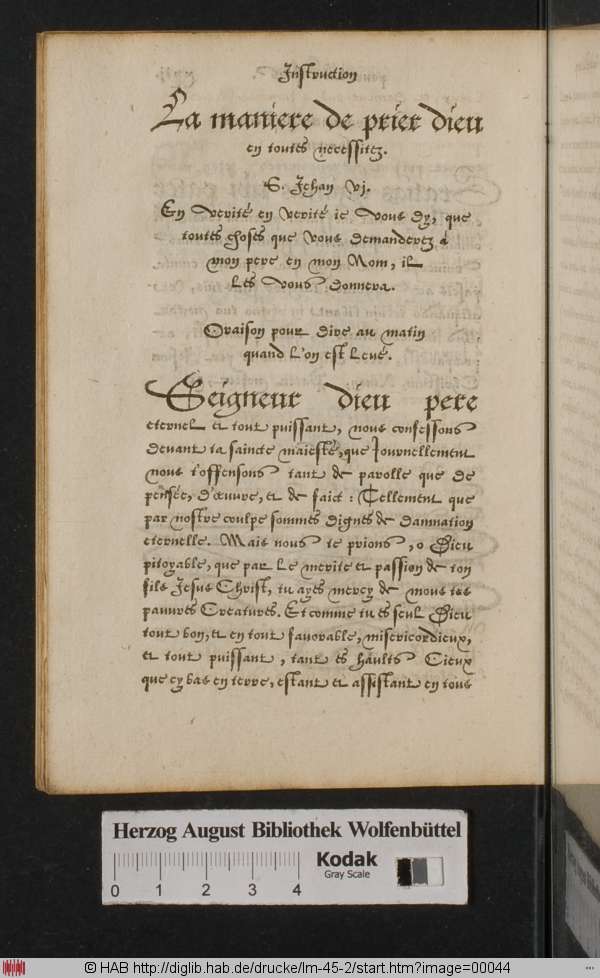 Instruction
La maniere de prier dieu
en toutes necessitez.
S. Jehan vj.
En verité en verité ie vous dy, que
toutes choses que vous demanderez à
mon pere en mon Nom, il
les vous donnera.
Oraison pour dire au matin
quand l'on est levé.
Seigneur dieu pere
eternel et tout puissant, nous confessons
devant ta saincte maiesté, que Journellement
nous t'offensons tant de parolle que de
pensée, d'œuvre, et de faict: Tellement que
par nostre coulpe sommes dignes de damnation
eternelle. Mais nous te prions, o Dieu
pitoyable, que par le merite et passion de ton
filz Jesus Christ, tu ayes mercy de nous tes
pauvres Creatures. Et comme tu es seul Dieu
tout bon, et en tout favorable, misericordieux,
et tout puissant, tant es haults Cieux
que cy bas en terre, estant et assistant en tous
Herzog August Bibliothek Wolfenbüttel
0 1 2 3 4
Kodak
Gray Scale
© HAB http://diglib.hab.de/drucke/lm-45-2/start.htm?image=00044